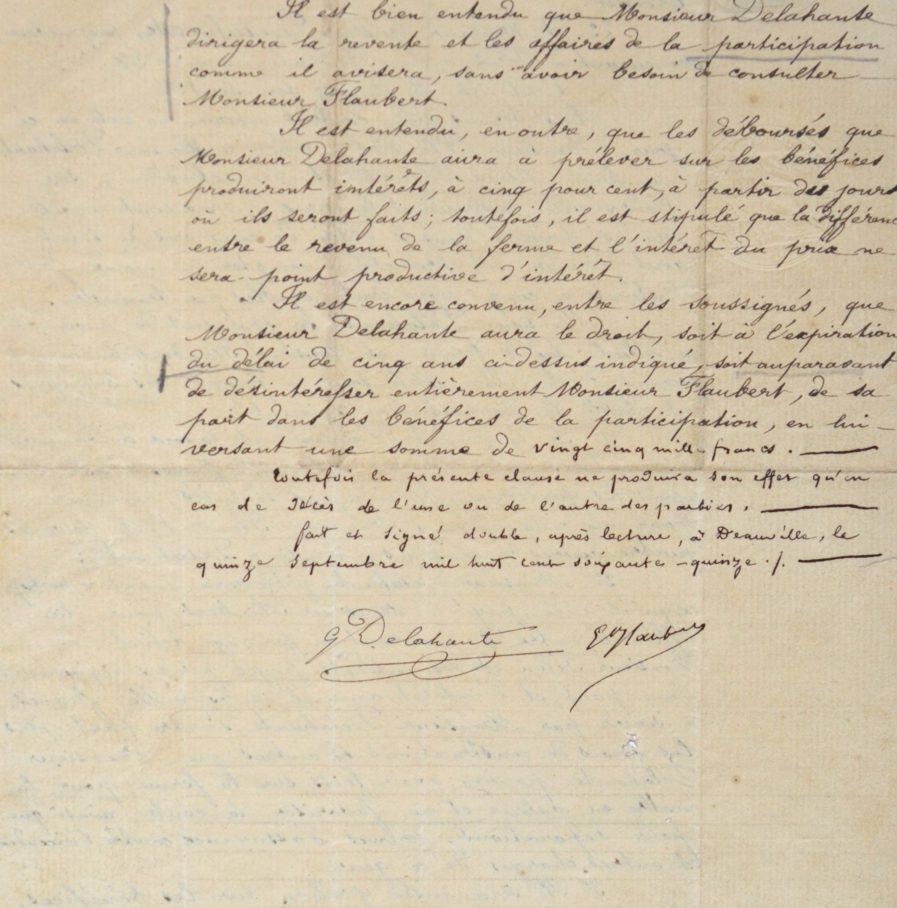 Il est bien entendu que Monsieur Delahante
dirigera la revente et les affaires de la participation
comme il avisera, sans avoir besoin de consulter
Monsieur Flaubert.
Il est entendu, en outre, que les déboursés que
Monsieur Delahante aura à prélever sur les bénéfices
produiront intérêts, à cinq pour cent, à partir des jours
où ils seront faits; toutefois, il est stipulé que la différenc
entre le revenu de la ferme et l'intérêt du prix ne
sera point productive d'intérêt.
Il est encore convenu, entre les soussignés, que
Monsieur Delahante aura le droit, soit à l'expiration
du délai de cinq ans ci-dessus indiqué, soit auparavant
de désintéresser entièrement Monsieur Flaubert, de sa
part dans les bénéfices de la participation, en lui
versant une somme de vingt cinq mille francs.
toutefois la présente clause ne produira son effet qu'en
cas de décès de l'une ou de l'autre des parties.
fait et signé double, après lecture, à Deauville, le
quinze septembre mil huit cent soixante-quinze ./.
G Delahante
Gve Flaubert